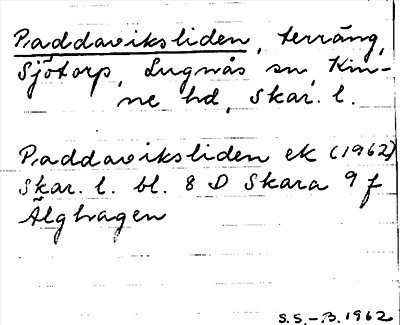 Paddaviksliden, terräng,
Sjötorp, Lugnås sn, Kin-
ne hd, Skar. l.
Paddaviksliden ek (1962)
Skar. l. bl. 8 D Skara 9 f
Älghagen
S.S.-B. 1962